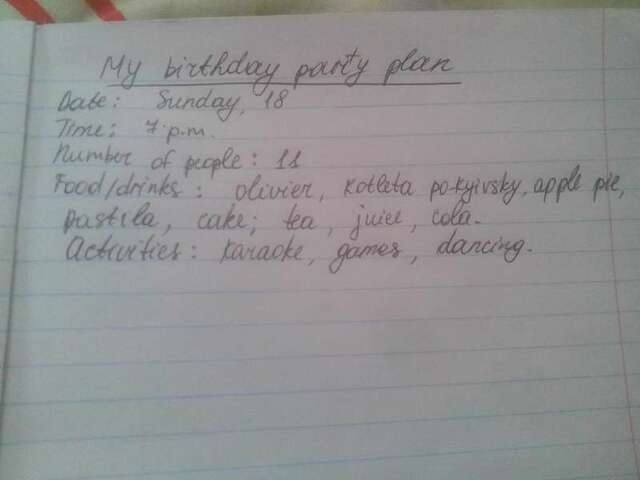 My birthday party plan
Date: Sunday, 18
Time: 7 p.m.
Number of people: 11
Food/drinks: olivier, kotleta po-kyivsky, apple pie,
pastila, cake; tea, juice, cola.
Activities: karaoke, games, dancing.